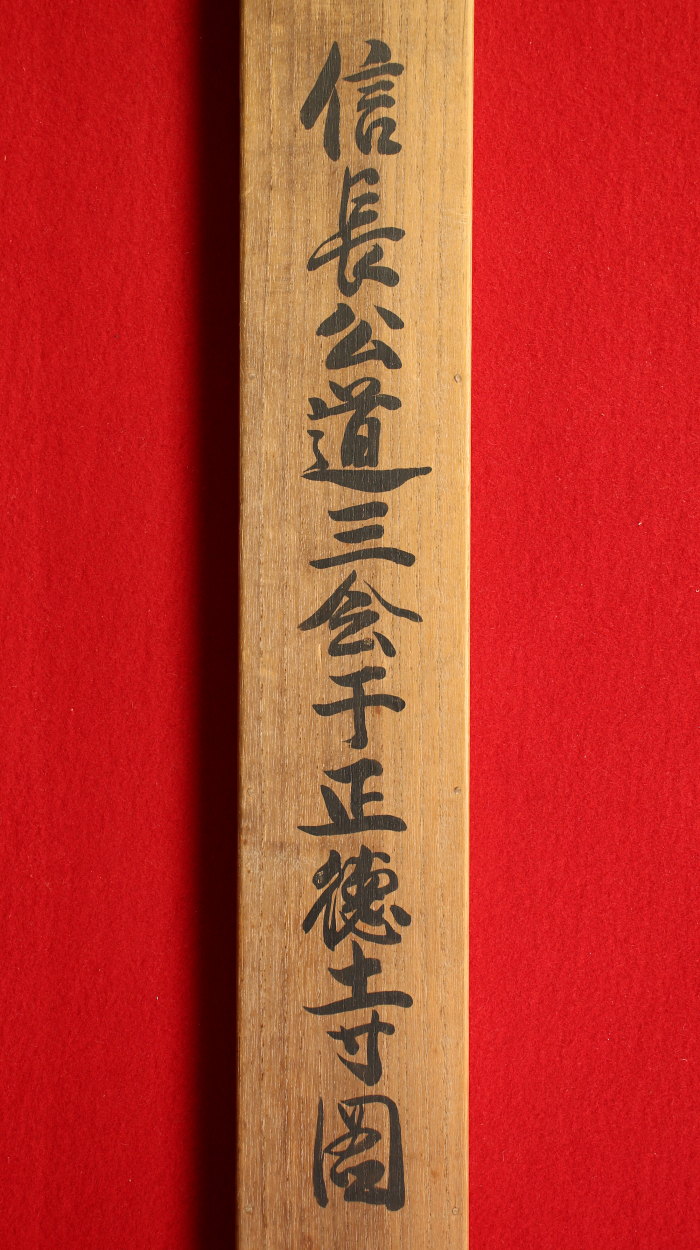 信長公道三会于正德寺圖